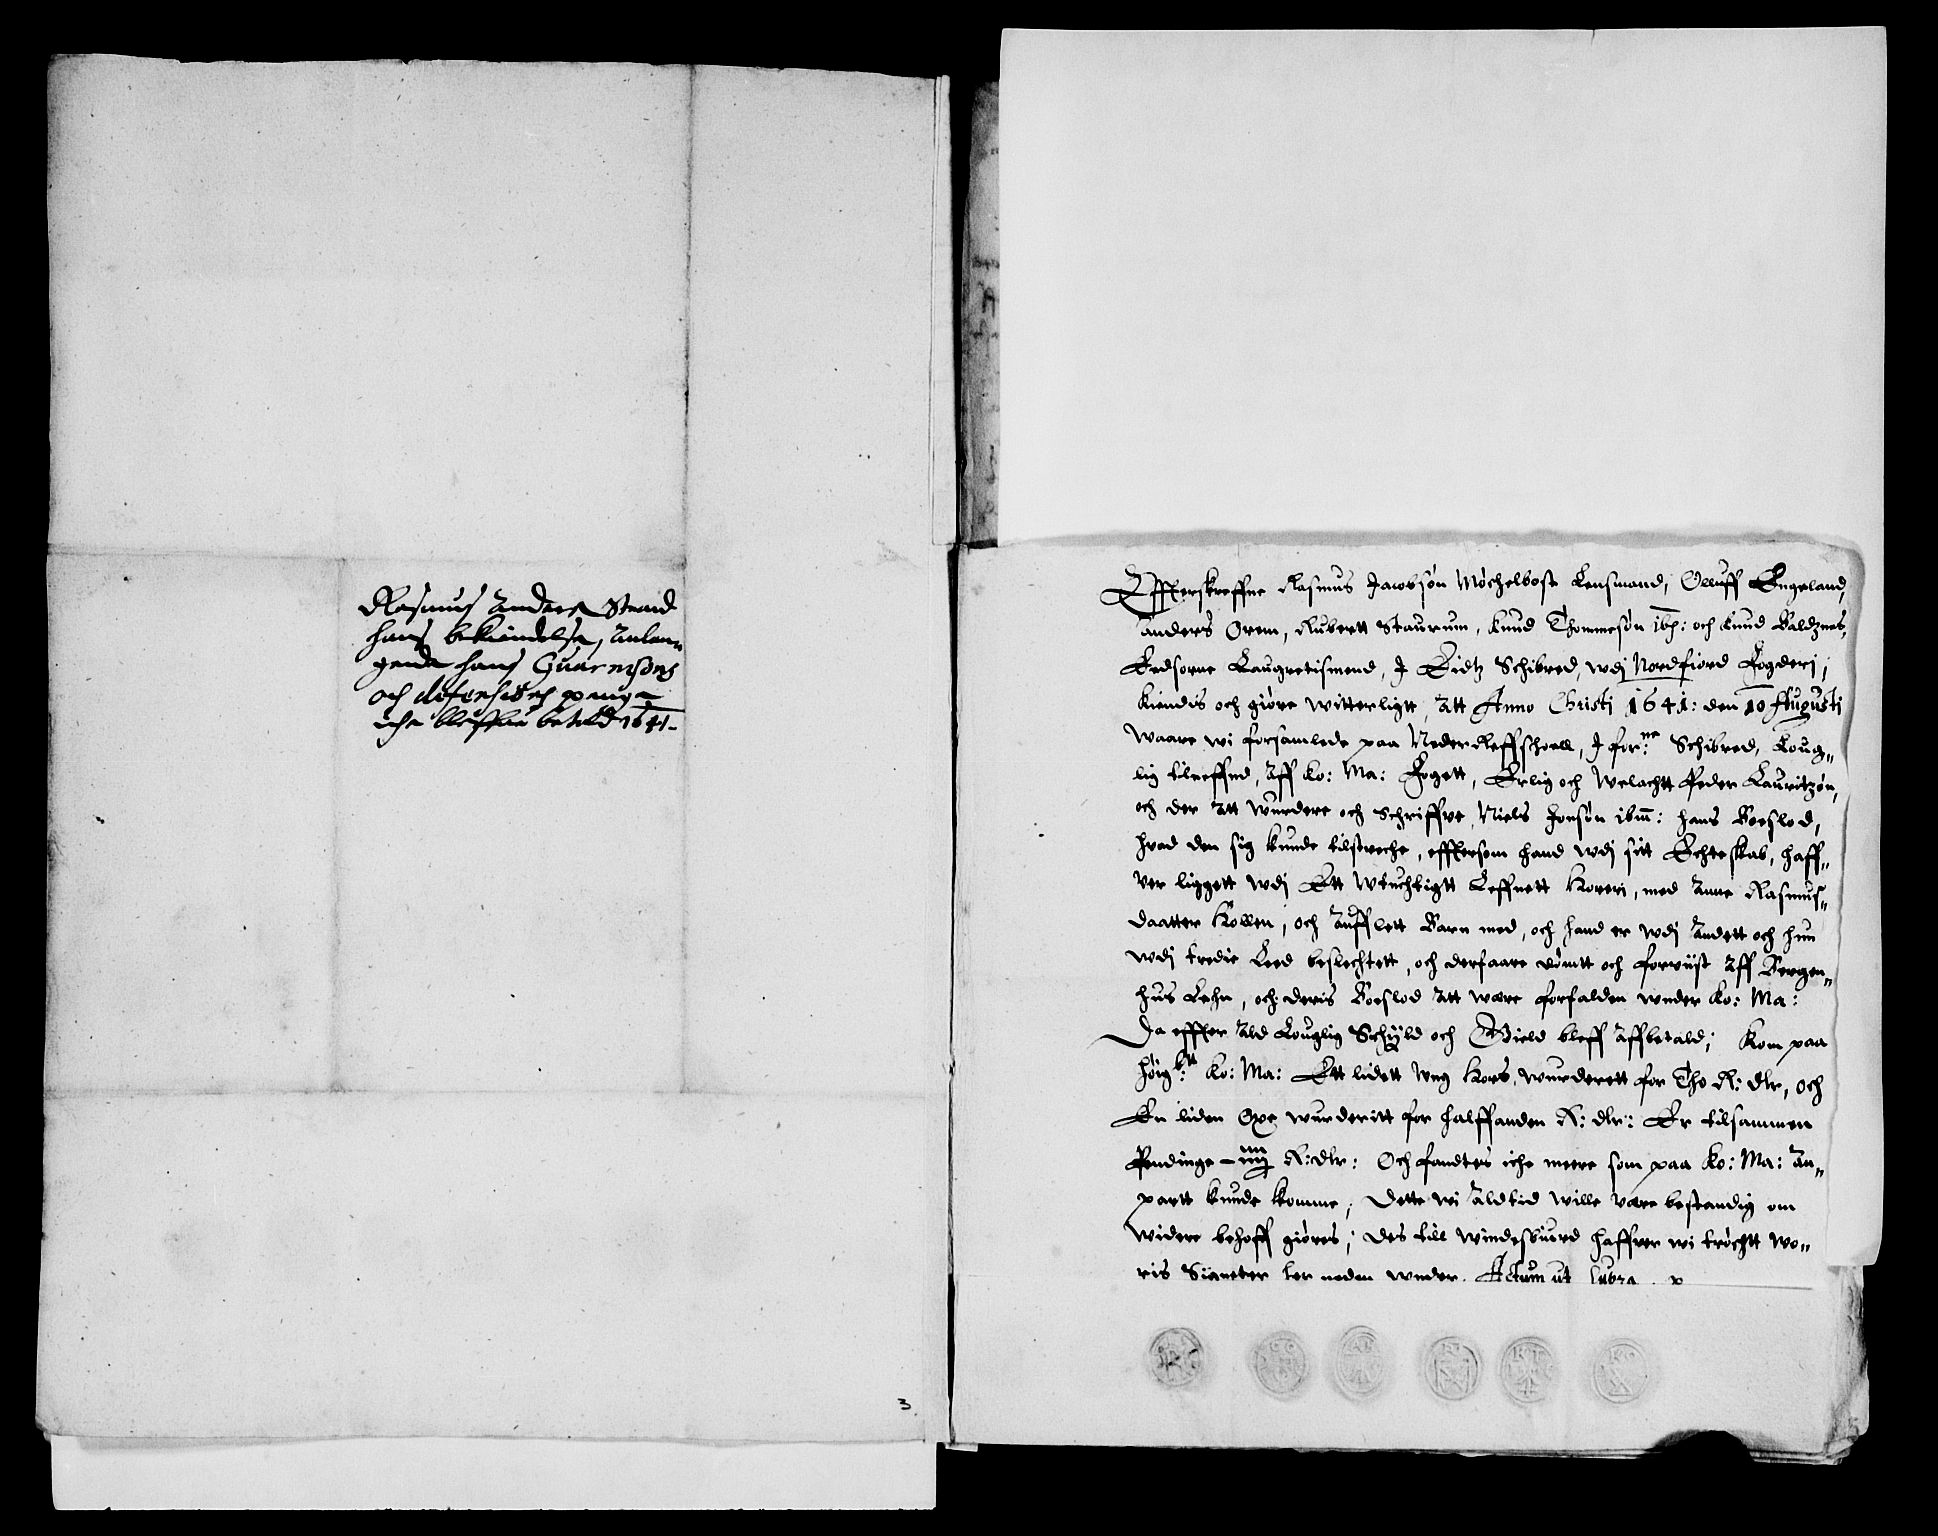 Rasmus Anders Strand
hans bekiendelse, Anlan
gende hans Guarnisons
och defensions penge
iche bleffue betald 1641.
3
Effterskreffne Rasmus Jacobsøn Møchelbost Lensmand, Olluff Engeland,
Anders Orem, Rubertt Staurum, Knud Thommesøn ibṇ: och Knud Baldznes,
Eedsorne Laugrettismend, J Eidtz Schibred, wdj Nordfiord Fogderj,
kiendis och giøre witterligtt, Att Anno Christi 1641: den 10 Augusti
waare wi forsamlede paa Neder Reffschoell, J for:ne Schibred, Loug„
lig tilneffnd, Aff Ko: Ma: Fogett, Erlig och Welachtt Peder Lauritzøn,
och der Att wurdere och Schriffve, Niels Jonsøn ibm: hans Boeslod,
hvad den sig kunde tilstreche, efftersom hand wdj sitt Echteskab, haff„
ver liggett wdj Ett wtuchtigtt Leffnett Horeri, med Anne Rasmus„
daatter Kollen, och Aufflett Barn med, och hand er wdj Andett och hun
wdj tredie Leed beslechtett, och derfaare dømtt och forwiist Aff Bergen„
hus Lehn, och deris Boeslod Att were forfalden wnder Ko: Ma:
Da effter Ald Louglig Schyld och Gield bleff Affbetald; Kom paa
høig:btt Ko: Ma: Ett lidett Ung Hors, wurderett for Tho R: dlr, och
En liden Oxe wurderitt for halffanden R: dlr: Er tilsammen
Pendinge – iiij R: dlr: Och fandtes iche meere som paa Ko: Ma: An„
partt kunde komme; Dette wi Altid wille være bestandig om
widere behoff giøres; Des till windesbiurd haffver wi trøchtt wo„
ris Signeter her neden wnder. Actum ut supra.